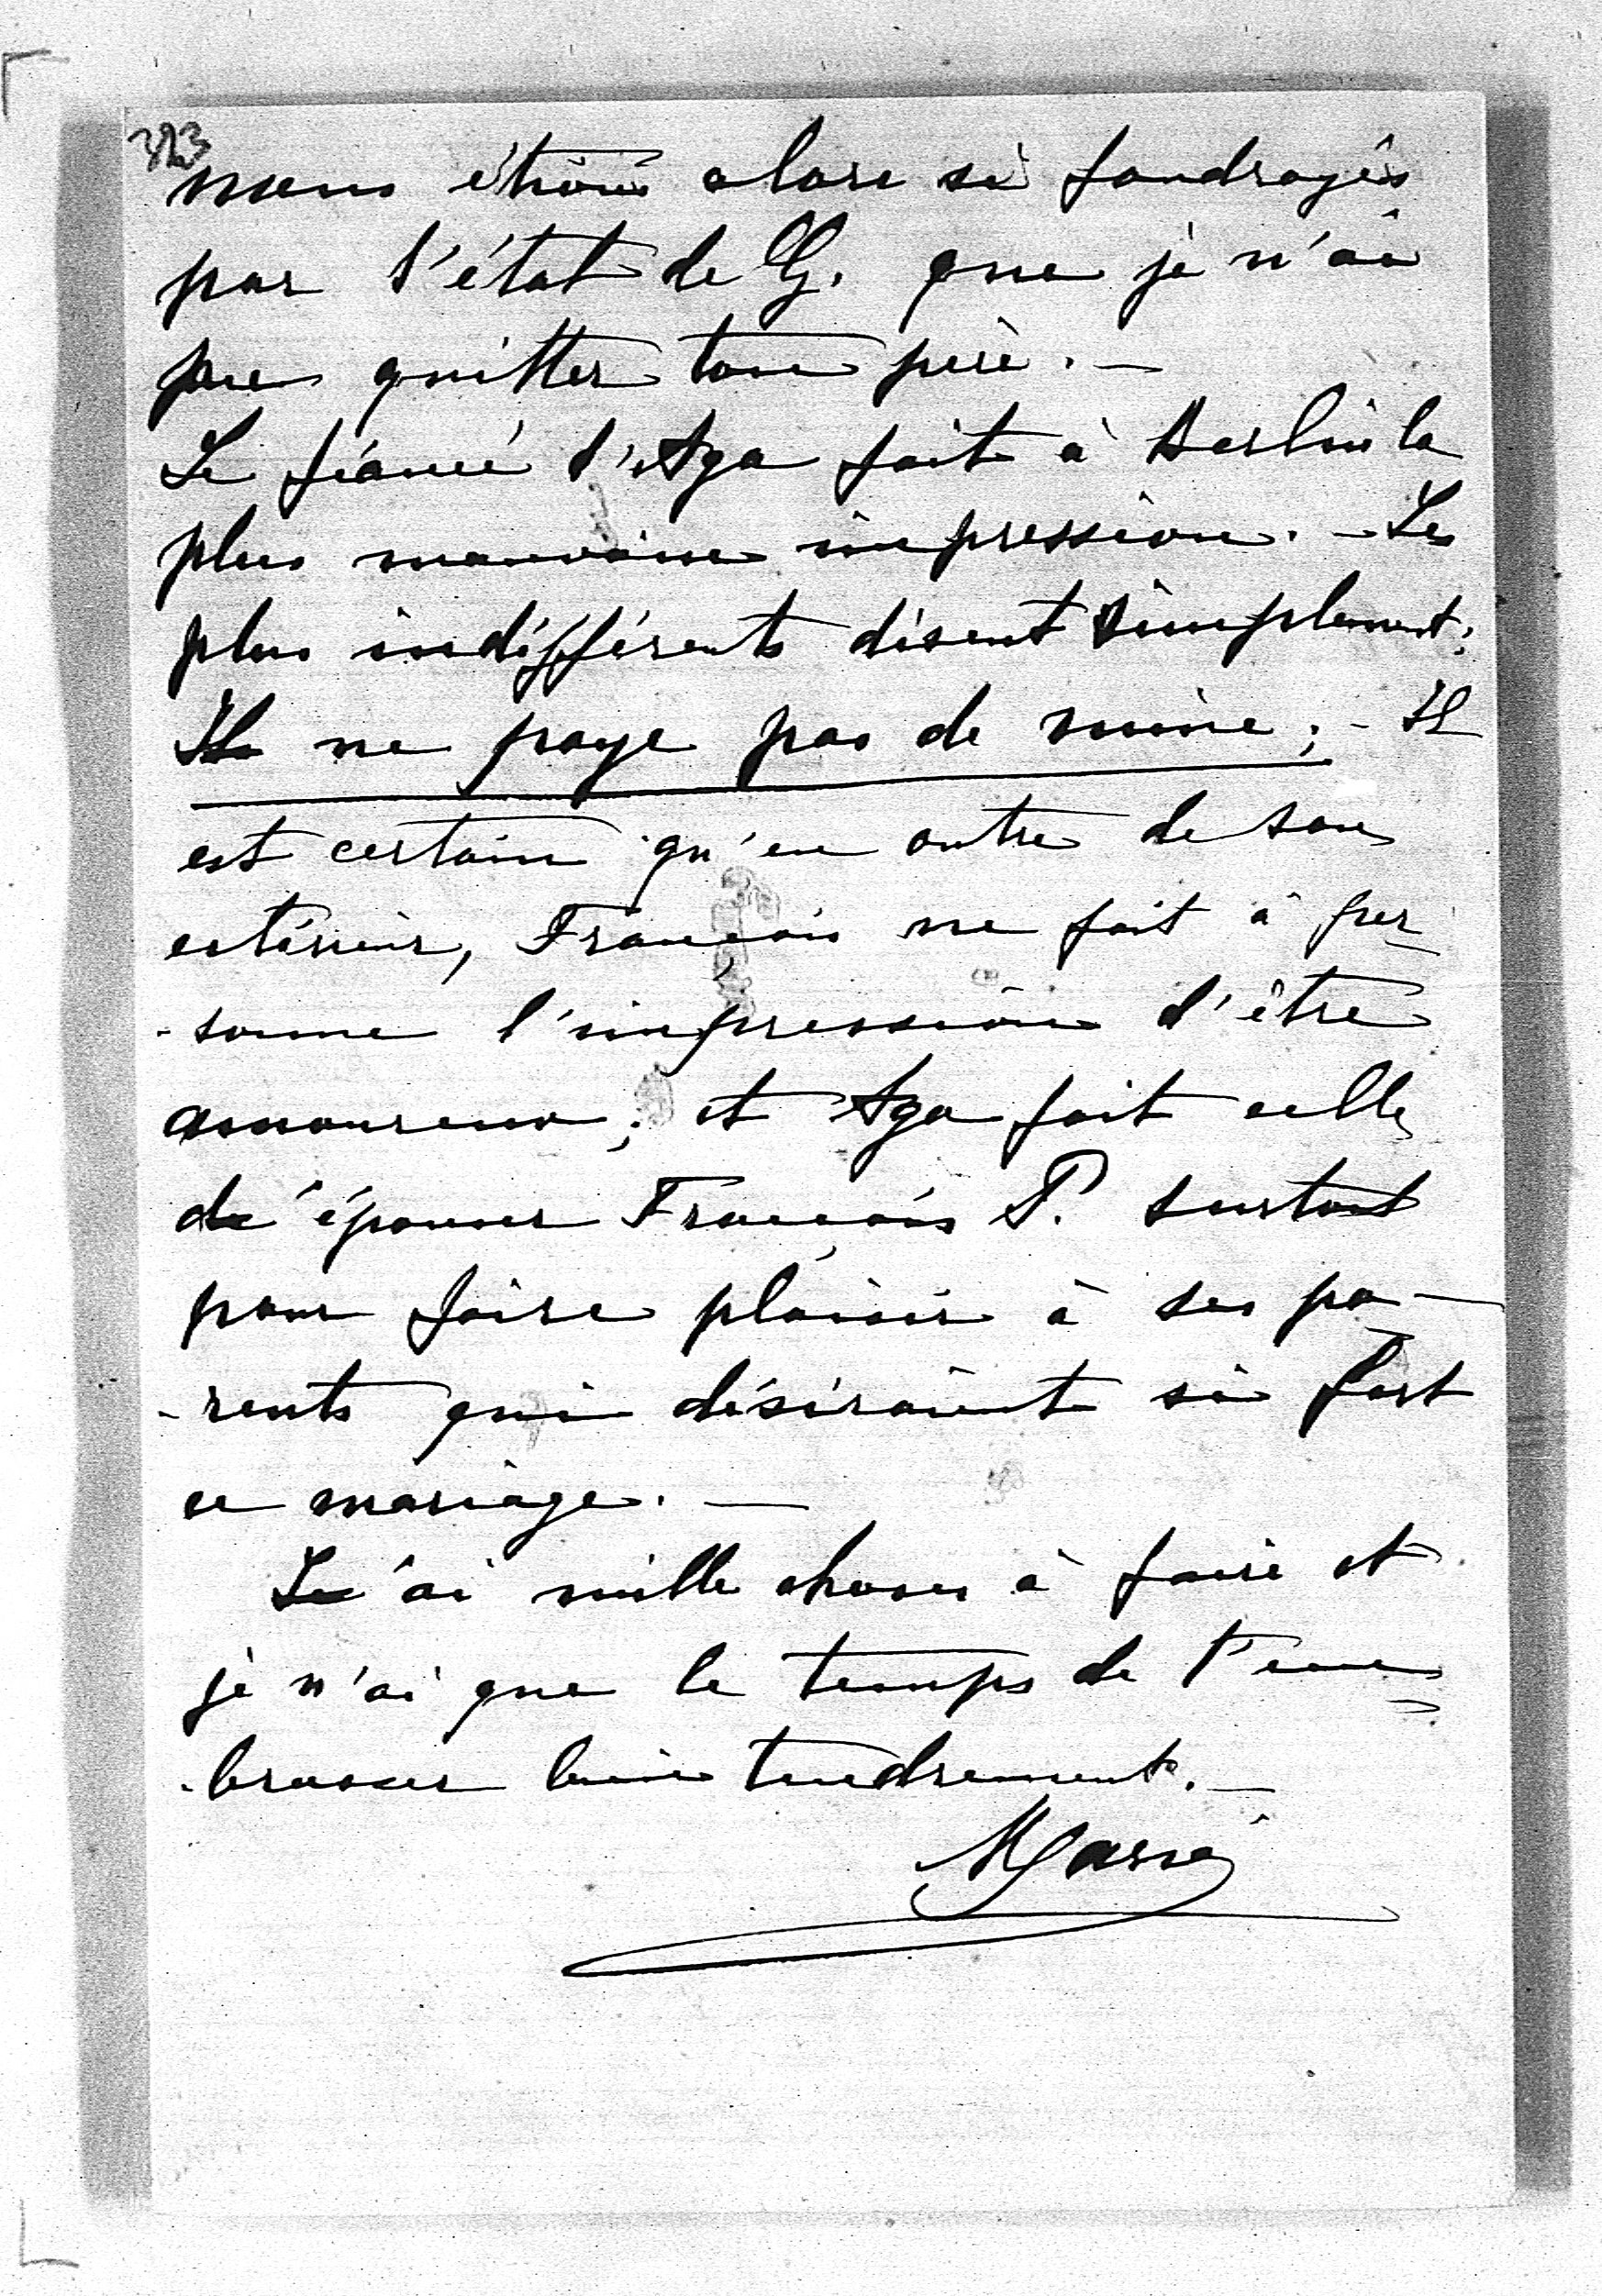 323
nous étions alors si foudroyés
par l'état de G. que je n'ai
pu quitter ton père. —
Le fiancé d'Aga fait à Berlin la
plus mauvaise impression. — Les
plus indifférents disent simplement:
Il ne paye pas de mine; — Il
est certain qu'en outre de son
extérieur, François ne fait à per-
-sonne l'impression d'être
amoureux; et Aga fait celle
d'épouser François P. surtout
pour faire plaisir à ses pa-
-rents qui désiraient si fort
ce mariage. —
J'ai mille choses à faire et
je n'ai que le temps de t'em-
-brasser bien tendrement. —
Marie